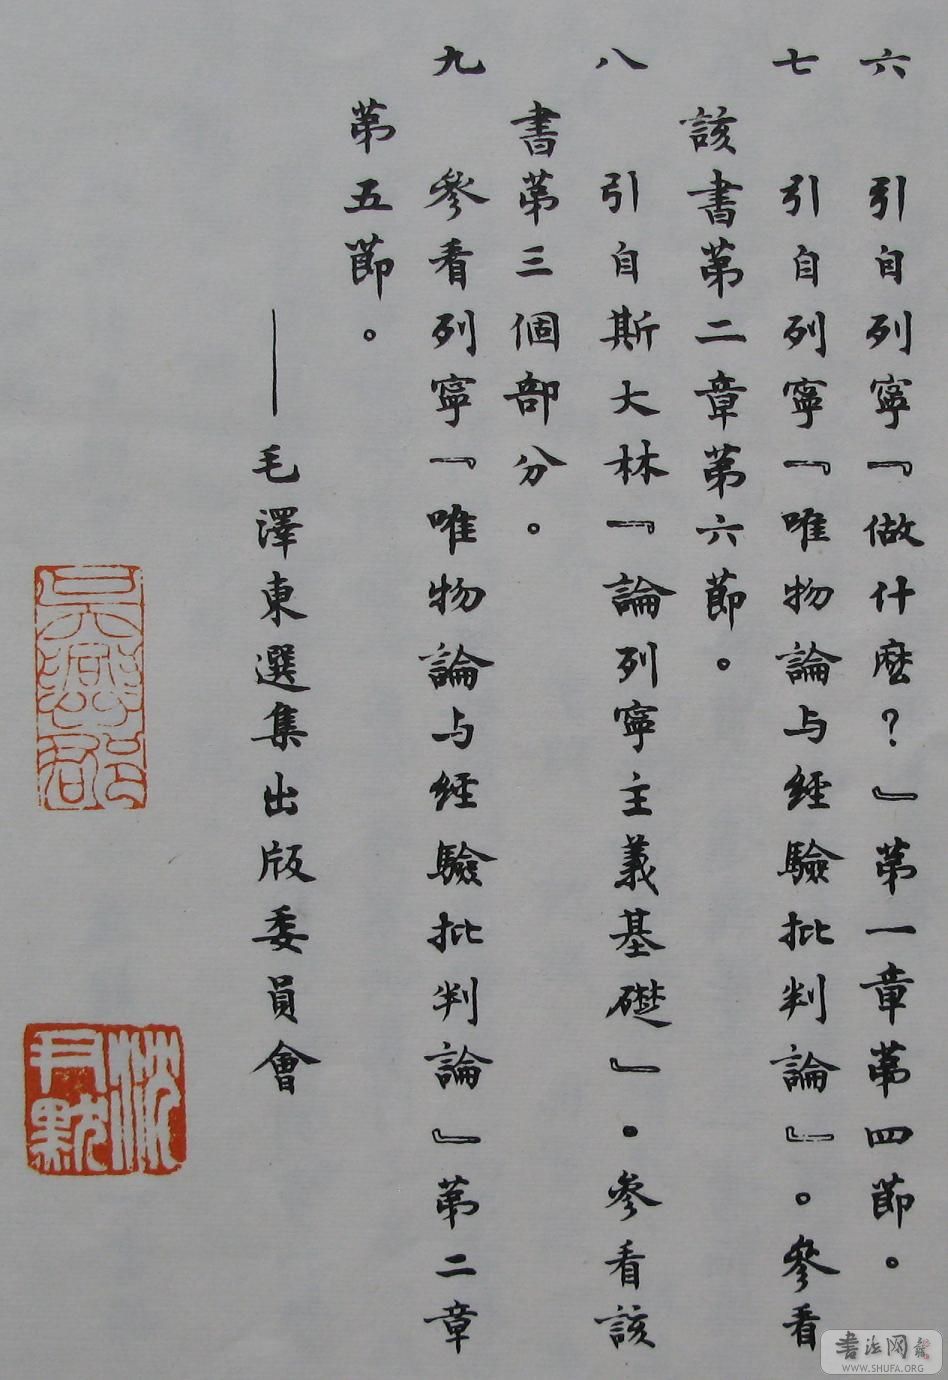 六　引自列寧『做什麽？』第一章第四節。
七　引自列寧『唯物論与經驗批判論』。參看
該書第二章第六節。
八　引自斯大林『論列寧主義基礎』。參看該
書第三個部分。
九　參看列寧『唯物論与經驗批判論』第二章
第五節。
——毛澤東選集出版委員會
沈尹默
書法网
WWW.SHUFA.ORG